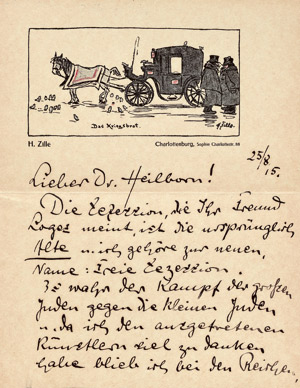 Das Kriegsbrot.
H. Zille
H. Zille
Charlottenburg, Sophie Charlottestr. 88
25/8
15.
Lieber Dr. Heilborn!
Die Sezession, die Ihr Freund
meint, ist die ursprünglich
Alte u. ich gehöre zur neuen,
Name: Freie Sezession.
Es wahr der Kampf der großen
Juden gegen die kleinen Juden
u. da ich den ausgetretenen
Künstlern viel zu danken
habe blieb ich bei den Reichen